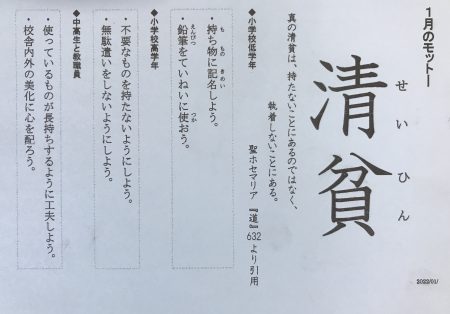 1月のモットー
清貧
せいひん
真の清貧は、持たないことにあるのではなく、
執着しないことにある。
聖ホセマリア『道』632より引用
◆小学校低学年
・持ち物に記名しよう。
も もの きめい
・鉛筆をていねいに使おう。
えんぴつ つか
◆小学校高学年
・不要なものを持たないようにしよう。
・無駄遣いをしないようにしよう。
◆中高生と教職員
・使っているものが長持ちするように工夫しよう。
・校舎内外の美化に心を配ろう。
2022/01/